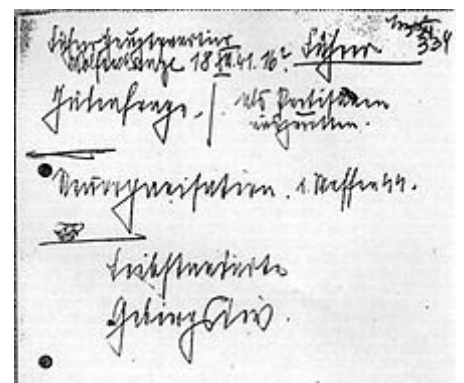 334
Führerhauptquartier
Wolfsschanze 18 XII. 41. 16ʰ. Führer
Judenfrage. | als Partisanen
auszurotten.
Neuorganisation. d. Waffen ᛋᛋ.
Leibstandarte
Gebirgsdiv.